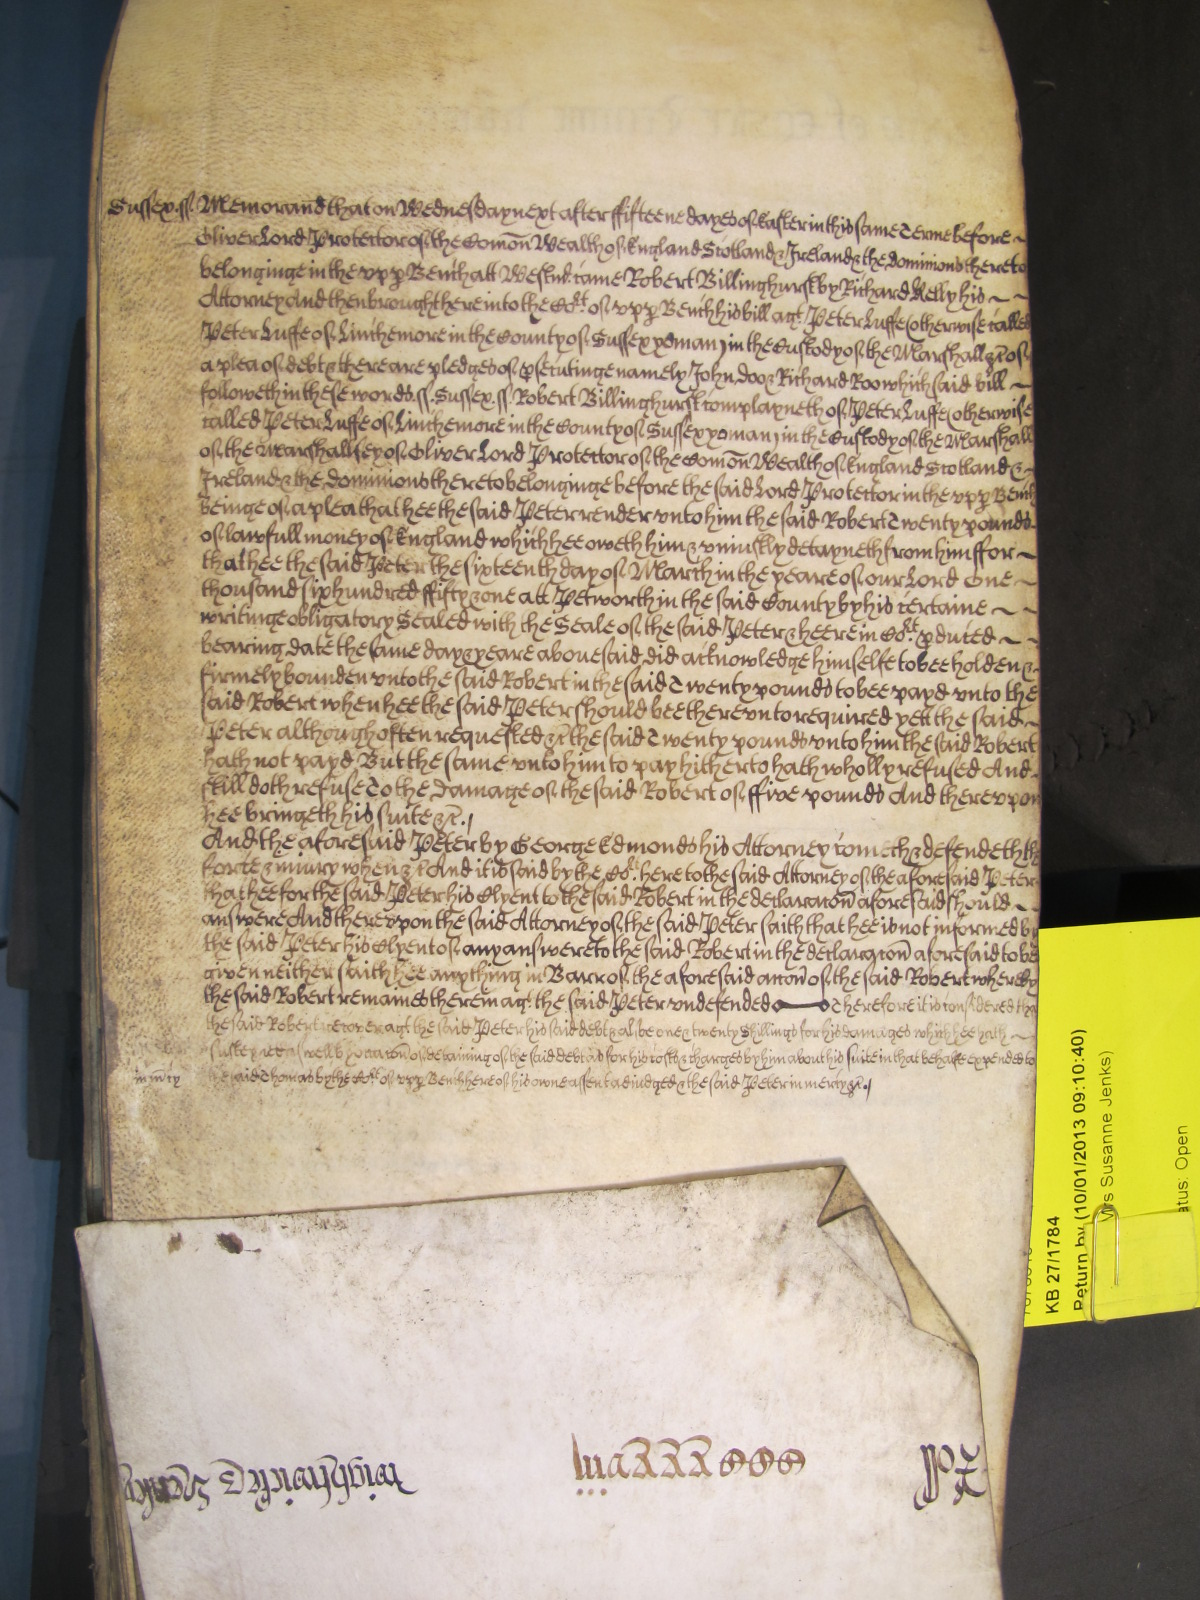 Sussex. ss. Memorand that on Wednesday next after ffifteene dayes of Easter in this same Terme before
Oliver Lord Protector of the Comon Wealth of England Scotland & Ireland & the dominions thereto
belonginge in the upp Bench att Westmr. came Robert Billinghurst by Richard Kelly his
Attorney And then brought here into the Cort. of upp Bench his bill agt. Peter Luffe (otherwise called
Peter Luffe of Linchemore in the County of Sussex yoman) in the Custody of the Marshall &c of
a plea of debt & there are pledges of psecutinge namely John Doo & Richard Roo which said bill
followeth in these words. ss. Sussex. ss. Robert Billinghurst complayneth of Peter Luffe (otherwise
called Peter Luffe of Linchemore in the County of Sussex yoman) in the Custody of the Marshall
of the Marshallsey of Oliver Lord Protector of the Comon Wealth of England Scotland &
Ireland & the dominions thereto belonginge before the said Lord Protector in the upp Bench
beinge of a plea that hee the said Peter render unto him the said Robert Twenty pounds
of lawfull money of England which hee oweth him & uniustly detayneth from him ffor
that hee the said Peter the sixteenth day of March in the yeare of our Lord One
thousand six hundred ffifty & one att Petworth in the said County by his certaine
writinge obligatory Sealed with the Seale of the said Peter & heere in Cort. pduced
bearing date the same day & yeare abovesaid did acknowledge himselfe to bee holden &
firmely bounden unto the said Robert in the said Twenty pounds to bee payd unto the
said Robert when hee the said Peter should bee thereunto required yett the said
Peter although often requested &c the said Twenty pounds unto him the said Robert
hath not payd But the same unto him to pay hitherto hath wholly refused And
still doth refuse To the Damage of the said Robert of ffive pounds And thereupon
hee bringeth his suite &c.
And the aforesaid Peter by George Edmonds his Attorney cometh & defendeth the
force & iniury when &c And it is said by the Cort. here to the said Attorney of the aforesaid Peter
that hee for the said Peter his Clyent to the said Robert in the declaracon aforesaid should
answere And thereupon the said Attorney of the said Peter saith that hee is not informed by
the said Peter his Clyent of any answere to the said Robert in the declaracon aforesaid to be
given neither saith hee any thing in Barr of the aforesaid accon of the said Robert whereby
the said Robert remaines therein agt. the said Peter undefended Therefore it is considered that
the said Robert recover agt the said Peter his said debt & alsoe one & twenty Shillings for his damages which hee hath
susteyned aswell by occacon of detaining of the said debt as for his costs & charges by him about his suite in that behalfe expended to
in mcy the said Thomas by the Cort of upp Bench here of his owne assent adiudged & the said Peter in mercy &c.
KB 27/1784
Return by (10/01/2013 09:10:40)
Mrs Susanne Jenks)
atus: Open